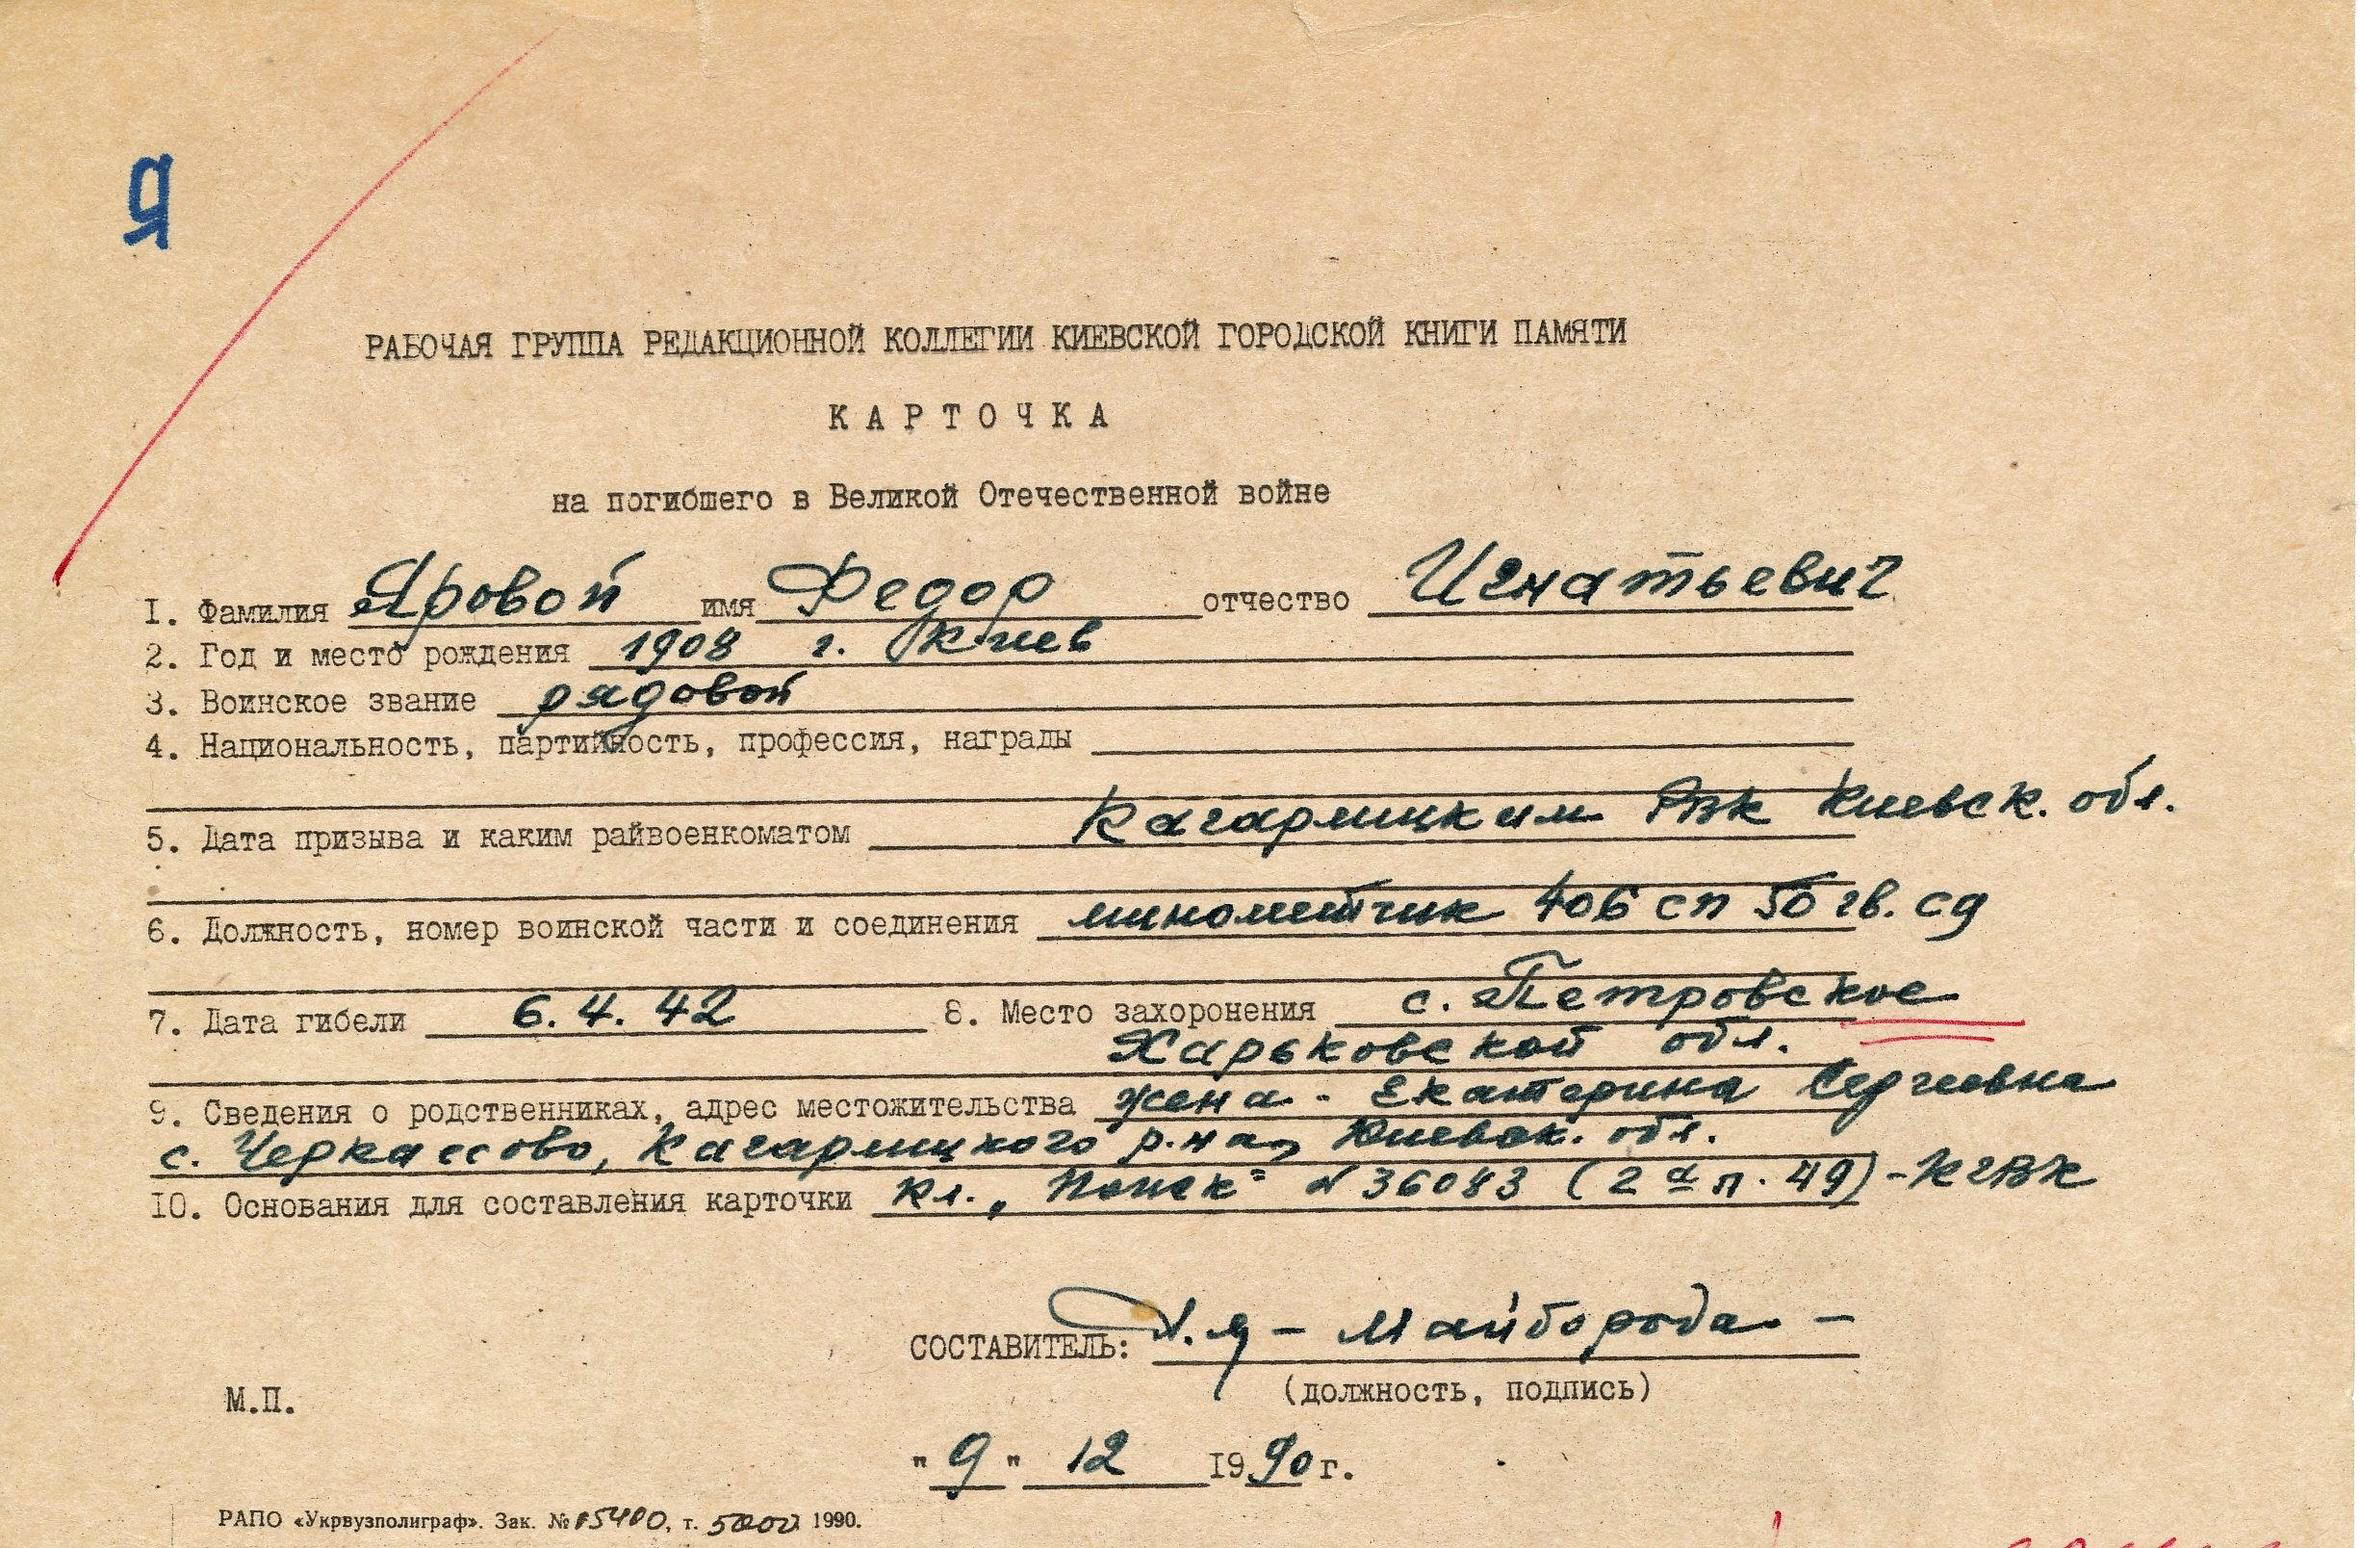 Я
РАБОЧАЯ ГРУППА РЕДАКЦИОННОЙ КОЛЛЕГИИ КИЕВСКОЙ ГОРОДСКОЙ КНИГИ ПАМЯТИ
КАРТОЧКА
на погибшего в Великой Отечественной войне
I. Фамилия Яровой имя Федор отчество Игнатьевич
2. Год и место рождения 1908 г. Киев
3. Воинское звание рядовой
4. Национальность, партийность, профессия, награды
5. Дата призыва и каким райвоенкоматом Кагарлицким РВК Киевск. обл.
6. Должность, номер воинской части и соединения минометчик 406 сп 50 гв. сд
7. Дата гибели 6.4.42 8. Место захоронения с. Петровское
Харьковской обл.
9. Сведения о родственниках, адрес местожительства жена - Екатерина Сергеевна
с. Черкассово, Кагарлицкого р.на, Киевск. обл.
IO. Основания для составления карточки Кл. „Поиск" N 36083 (2а п. 49) - КГВК
СОСТАВИТЕЛЬ: - Майборода -
(должность, подпись)
М.П.
" 9 " 12 1990 г.
РАПО «Укрвузполиграф». Зак. № 5400, т. 5000 1990.